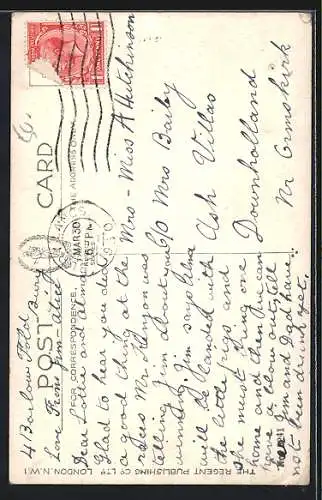 POST CARD
FOR CORRESPONDENCE.
THE ADDRESS ONLY
THE REGENT PUBLISHING CO LTD LONDON. N.W.1
MAR 30
4 Barlow Fold
Bury
Love From Jim - Alice
Dear Lottie and Alma
Glad to hear you did
a good thing at the
races Mr Kenyon was
telling Jim about you
winning. Jim says Alma
will be landed with
the little pigs and
she must bring one
home and then you can
have a blow out still
Jim and Dad have
not been drunk yet.
Mrs - Miss A Hutchinson
c/o Mrs Baily
Ash Villas
Downholland
Nr Ormskirk